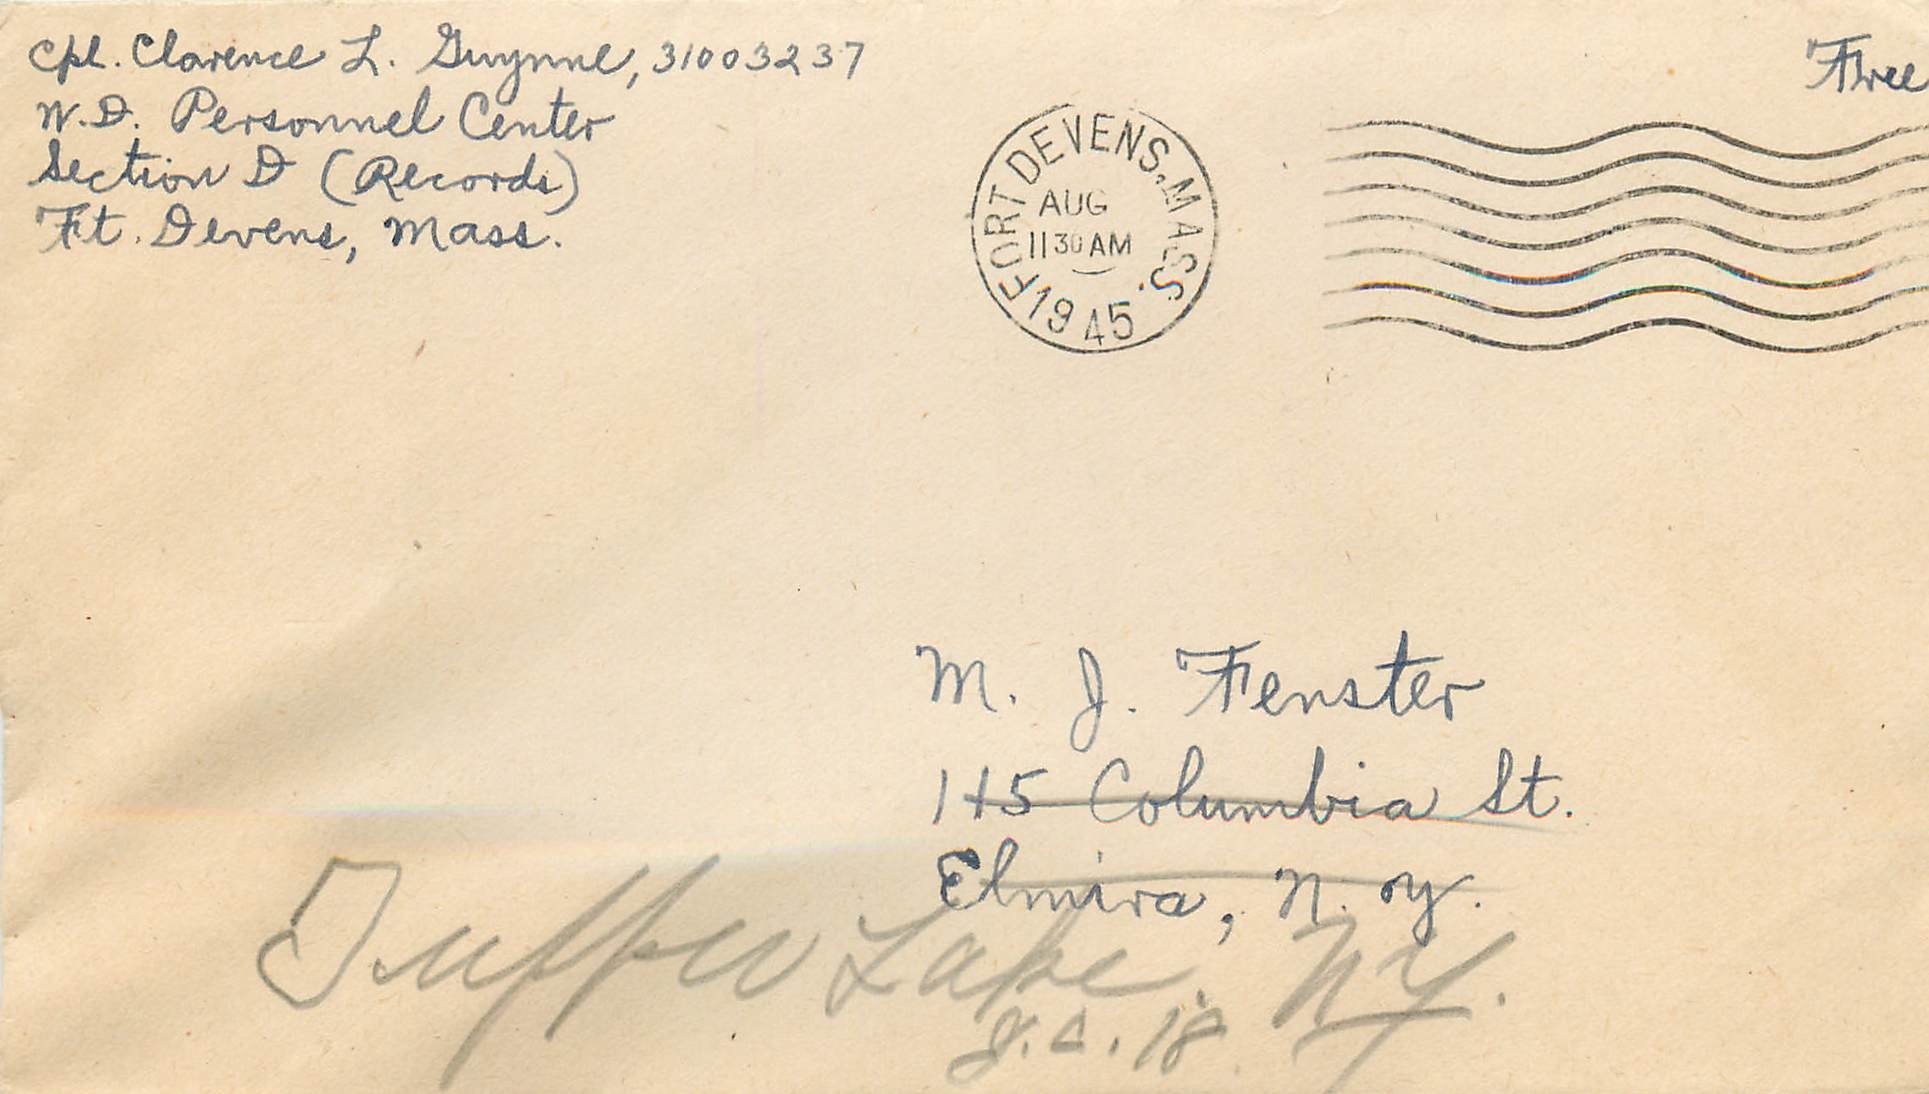 Cpl. Clarence L. Gwynne, 31003237
W.D. Personnel Center
Section D (Records)
Ft. Devens, Mass.
Free
FORT DEVENS, MASS.
AUG
1130 AM
1945
M. J. Fenster
115 Columbia St.
Elmira, N.Y.
Tupper Lake, NY.
J.C. 18